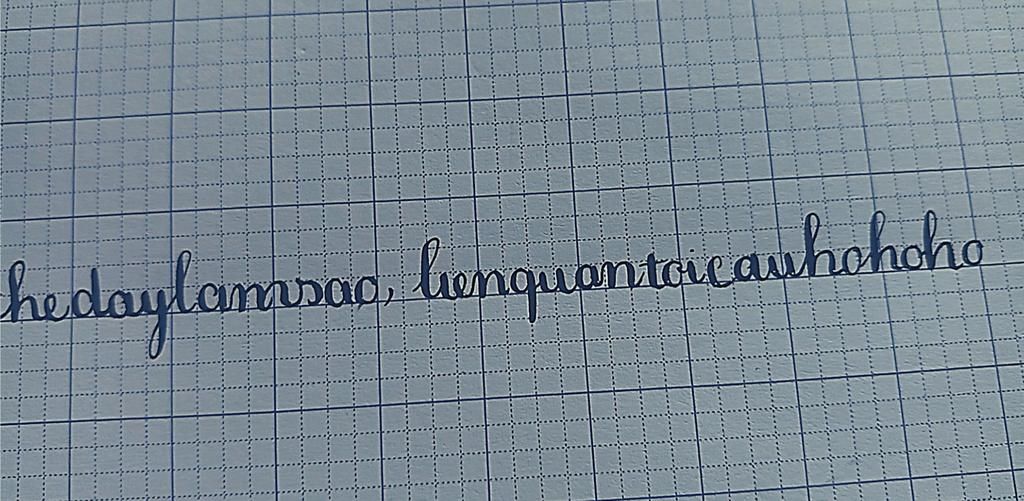 hedaylamsao, lienquantoicauhohoho